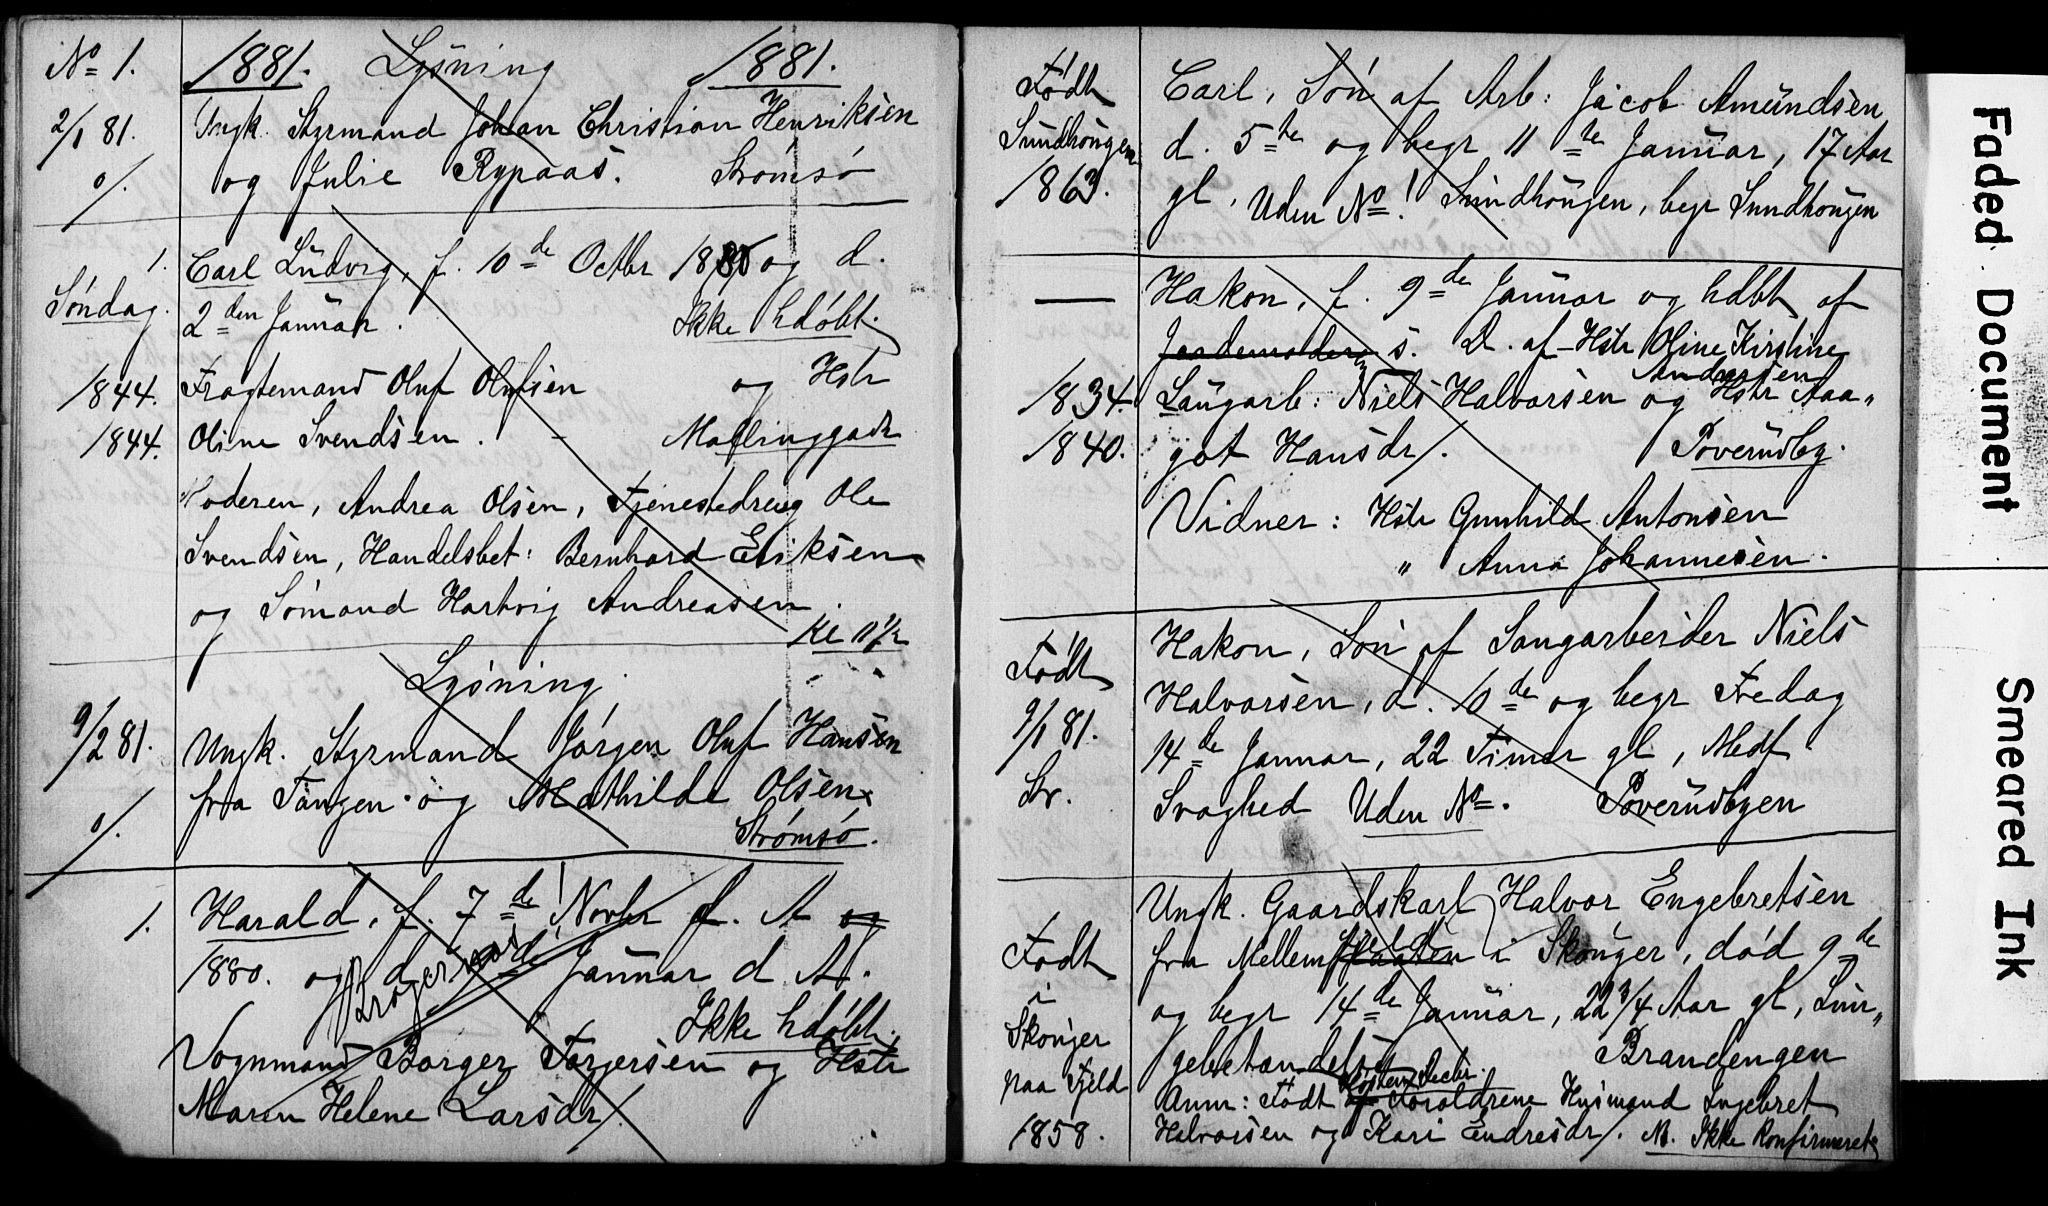 No 1.
1881. Lysning 1881.
2/1 81.
Ungk. Styrmand Johan Christian Henriksen
0/.
og Julie Rypaas. Strømsø
1.
Carl Ludvig, f. 10de Octbr 1880 og d.
Søndag.
2den Januar. Ikke hdøbt.
1844. Fragtemand Oluf Olufsen og Hstr
1844. Oline Svendsen. - Mallinggade
Moderen, Andrea Olsen, Tjenestedreng Ole
Svendsen, Handelsbet: Bernhard Eriksen
og Sømand Hartvig Andreasen.
Kl 11 1/2
Lysning.
9/2 81.
Ungk. Styrmand Jørgen Oluf Hansen
fra Tangen og Mathilde Olsen
0/.
Strømsø.
1.
Harald, f. 7de Novbr f. A og
1880. og d. Januar d A.
Bragernæs
Ikke hdøbt.
Vognmand Borger Torgersen og Hstr
Maren Helene Larsdr/.
Født
Sundhougen
1863.
Carl, Søn af Arb: Jacob Amundsen,
d. 5te og begr 11te Januar, 17 Aar
gl, Uden No! Sundhougen, begr Sundhougen
Hakon, f. 9de Januar og hdbt af
Jordemoderen s. D. af Hstr Oline Kirstine
Andersen
1834. Saugarb: Niels Halvorsen og Hstr Aa„
1840. got Hansdr/. Toverudby.
Vidner: Hstr Gunhild Antonsen
" Anna Johannesen.
Født
9/1 81.
Str.
Hakon, Søn af Saugarbeider Niels
Halvorsen, d. 10de og begr Fredag
14de Januar, 22 Timer gl, Medf
Svaghed Uden No. Toverudbyen
Født
i
Skouger
paa Fjeld
1858.
Ungk. Gaardskarl Halvor Engebretsen
fra Mellem i Skouger, død 9de
og begr 14de Januar, 22 3/4 Aar gl, Lun„
gebetændelse Brandengen
Anm: Født af Forældrene Husmand Engebret
Halvorsen og Kari Endresdr/. NB. Ikke Konfirmeret
Faded Document
Smeared Ink